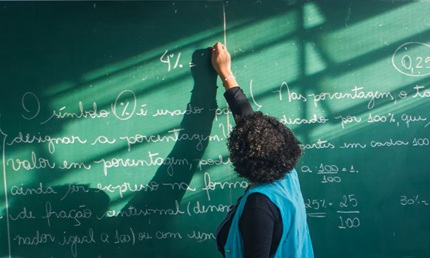 4% =
0,25
O símbolo % é usado p
designar a porcentagem.
valor em porcentagem,
ainda ser expresso na forma
de fração centesimal (denomi
nador igual a 100) ou com um
Nas porcentagem, o
por 100%, que
em cada 100
100
100
25% = 25
100
30% =